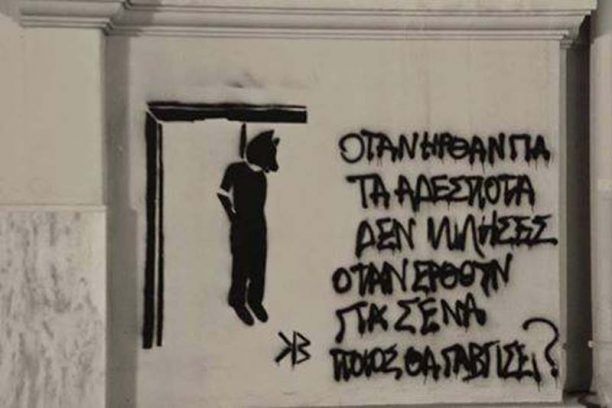 ΟΤΑΝ ΗΡΘΑΝ ΓΙΑ
ΤΑ ΑΔΕΣΠΟΤΑ
ΔΕΝ ΜΙΛΗΣΕΣ
ΟΤΑΝ ΕΡΘΟΥΝ
ΓΙΑ ΣΕΝΑ
ΠΟΙΟΣ ΘΑ ΓΑΒΓΙΣΕΙ?
ΚΒ